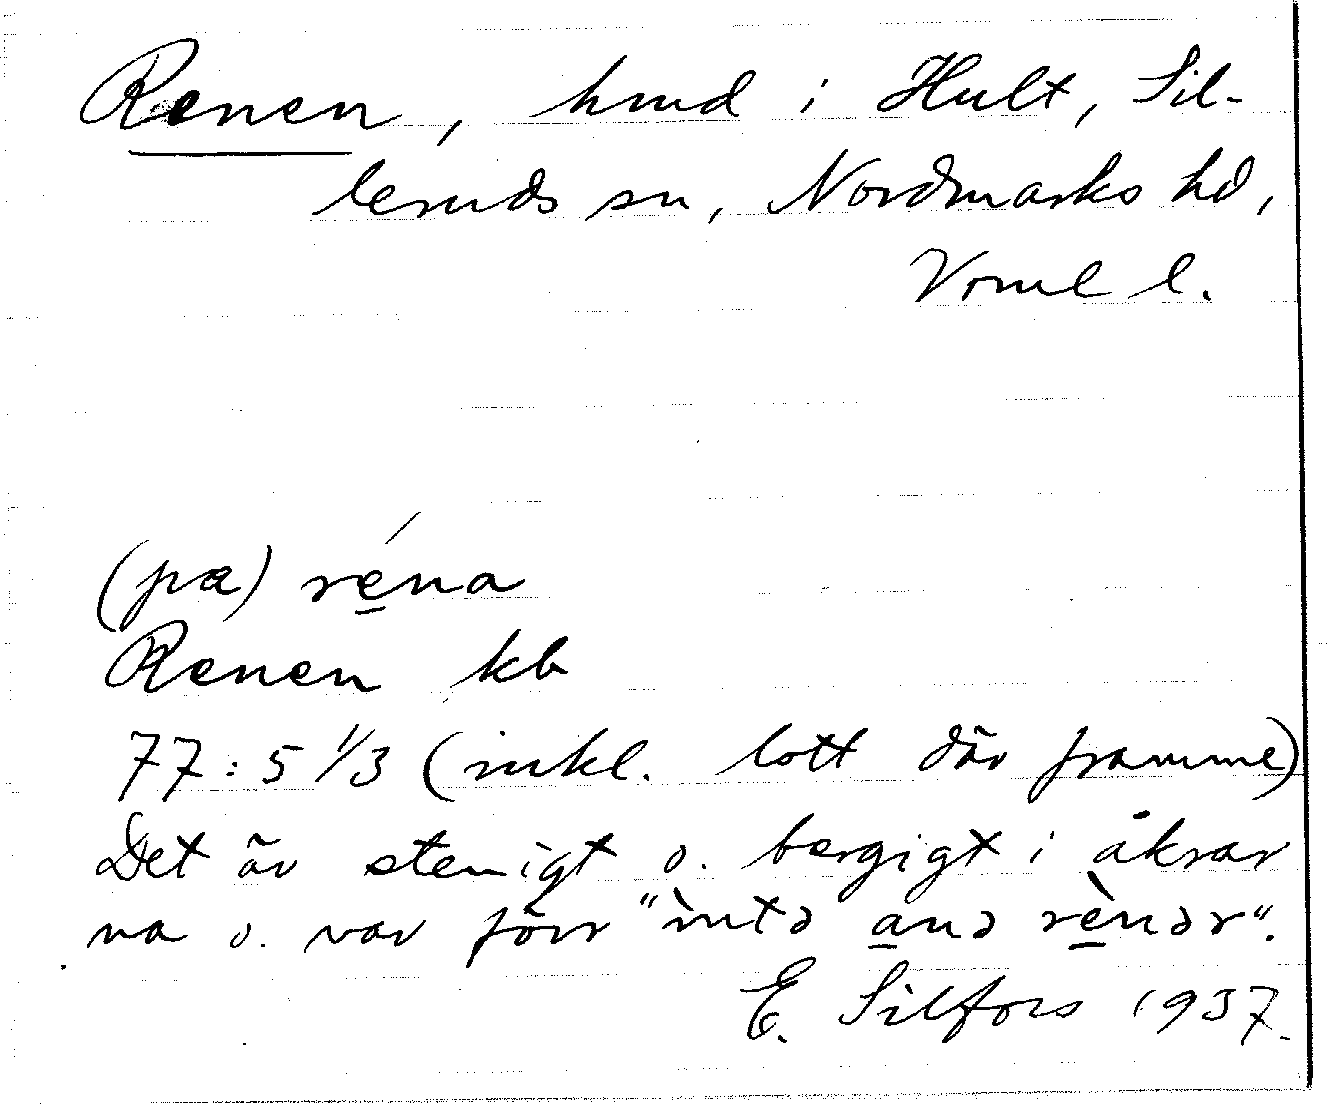 Renen, hmd i Hult, Sil-
leruds sn, Nordmarks hd,
Vrml l.
(pæ) réna
Renen kb
77:5 1/3 (inkl. lott där framme)
Det är stenigt o. bergigt i åkrar
na o. var förr "ìntə anə rènər".
E. Silfors 1937.